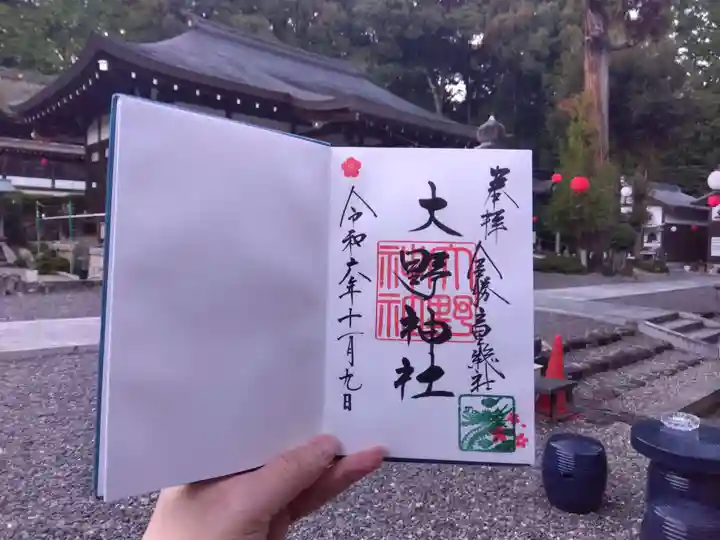 奉拝 金勝 総社
大野神社
大野
神社
令和六年十一月九日